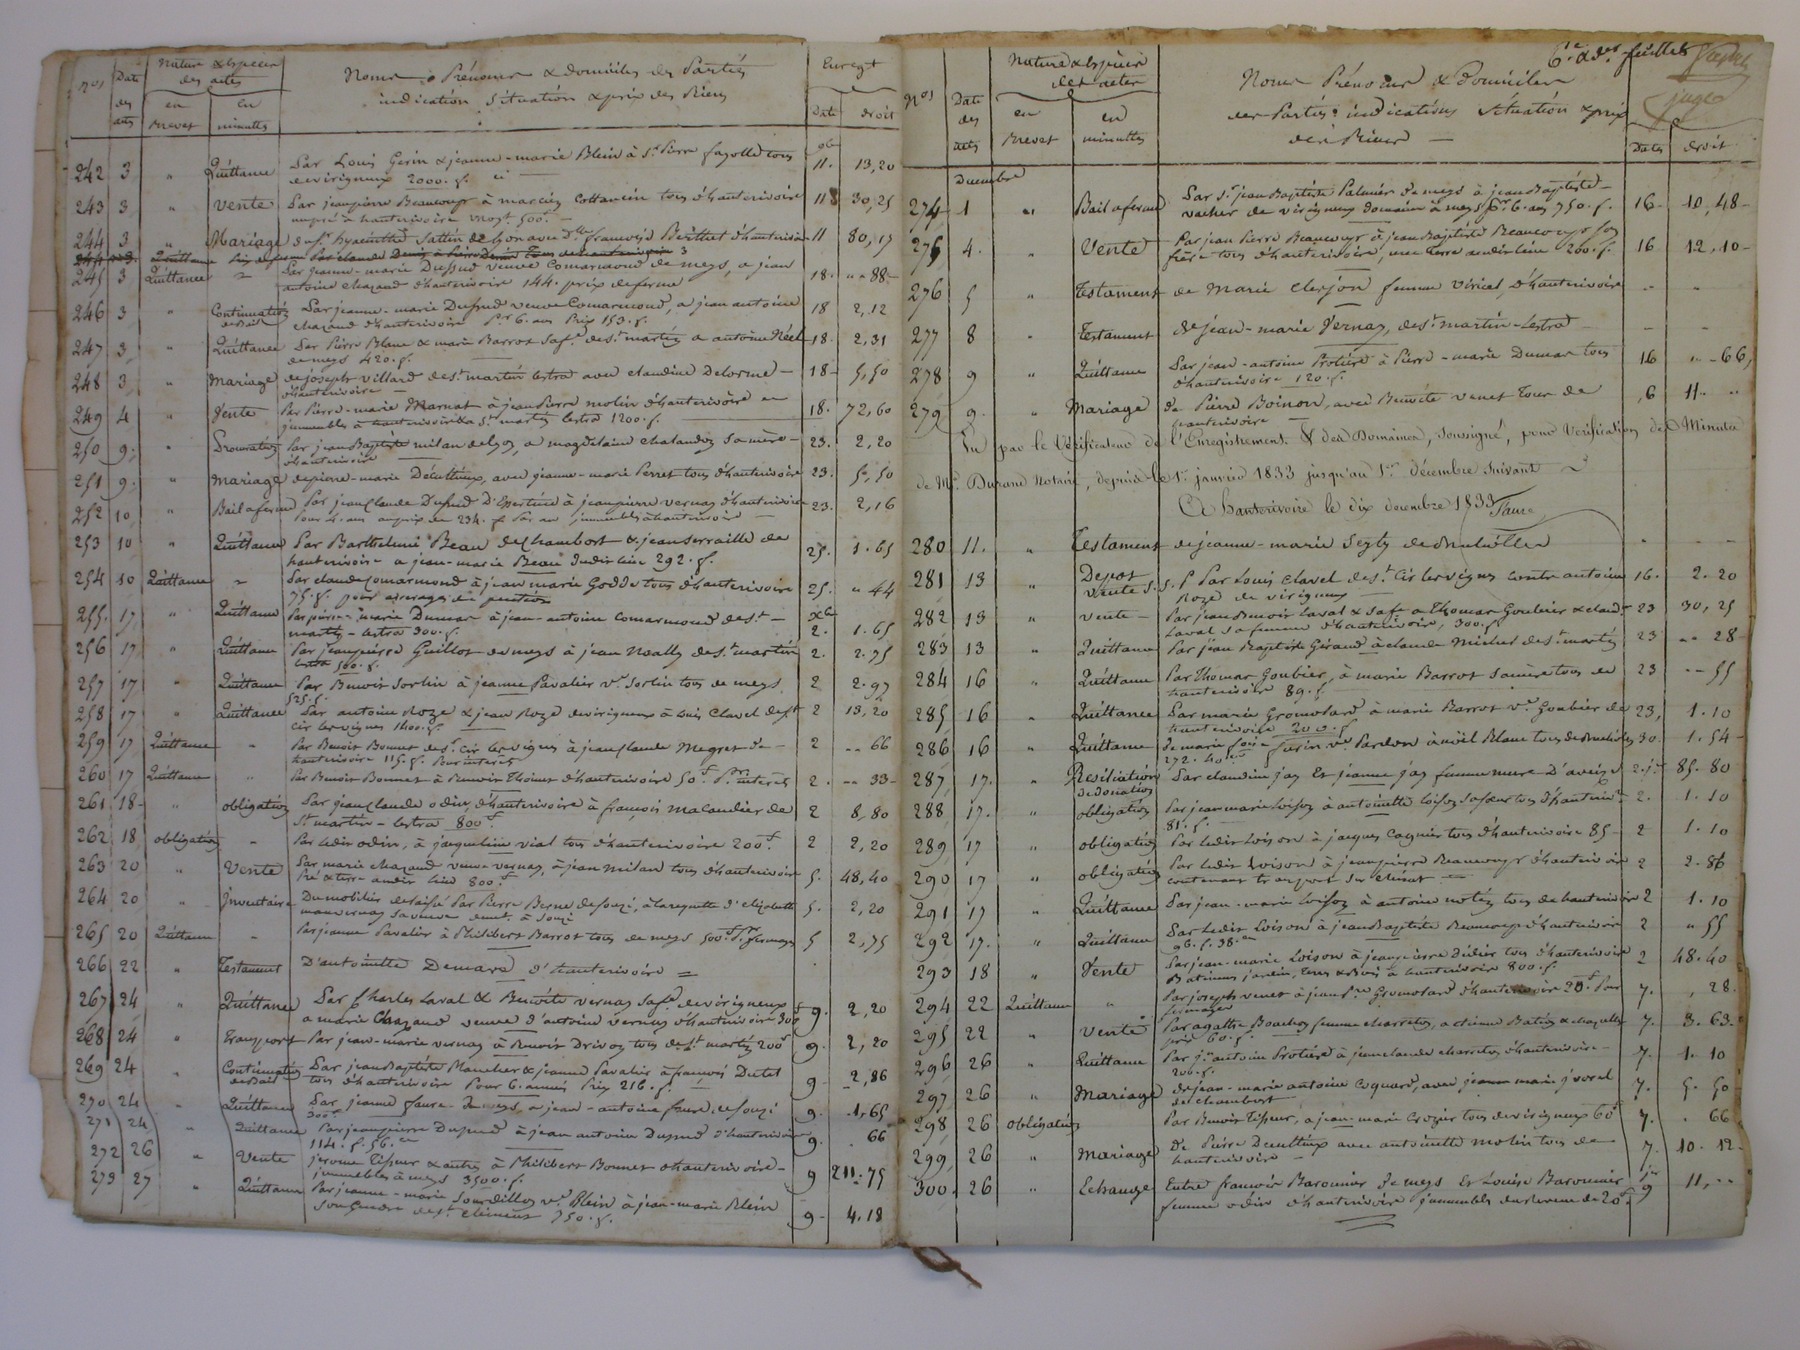 Nos Date des actes Nature & Espèces des actes en Brevet en minuttes Noms Prénoms & domiciles des Parties indication Situation & prix des Biens Enregt Date droit
242 3 " Quittance Par Louis Gerin & jeanne-marie Blein à St Pierre fayolle tous
de virigneux 2000. f. 11. 13,20
243 3, " Vente Par jeanpierre Beaucoup à marcien Cottancin tous d'hauterivoire 118 30,25
un pré à hauterivoire moyt 500.
244 3 " Mariage du Sr hyacinthe Sattin de Lyon avec dlle françoise Berthet d'hauterivoire 11 80,17
245 3 Quittance " Par jeanne-marie Dupud veuve Comarmond de meys, a jean 18. " 88
antoine chazaud d'hauterivoire 144. prix de ferme
246 3 " Continuation de Bail Par jeanne-marie Dupud veuve Comarmond, a jean antoine 18 2,12
chazaud d'hauterivoire Pr 6. ans Prix 153. f.
247 3, " Quittance Par Pierre Blanc & marie Barrot Sa fe de St martin a antoine Néel 18. 2,31
de meys 420. f.
248 3, " Mariage de joseph villard de St martin lestra avec claudine Delorme 18 5,50
d'hauterivoire
249 4 " Vente Par Pierre-marie Marnat à jean Pierre molin d'hauterivoire en 18. 72,60
immeubles à hauterivoire & St martin lestra 1200. f.
250 9, " Procuration Par jean Baptiste milan de Lyon, a magdelaine chalandon sa mère 23. 2,20
d'hauterivoire
251 9. " Mariage de pierre-marie Décultieux, avec jeanne-marie Perret tous d'hauterivoire 23. 5,50
252 10, " Bail a ferme Par jean Claude Dupud D'Essertine à jeanpierre vernay d'hauterivoire 23. 2,16
Pour 4. ans au prix de 234. f. Par an immeubles à hauterivoire
253 10 " Quittance Par Barthelemi Beau de Chambost & jean Serraille de 25. 1.65
hauterivoire a jean-marie Beau dudit lieu 292. f.
254 10 Quittance " Par claude Comarmond à jean marie Godde tous d'hauterivoire 25. " 44
75. f. pour arrerages de pension
255. 17, " Quittance Par pierre-marie Dumas à jean-antoine Comarmond de St Xbre
martin-lestra 300. f. 2. 1.65
256 17, " Quittance Par jeanpierre Guillot de meys à jean Noally de St martin 2. 2.75
lestra 500. f.
257 17 " Quittance Par Benoit Sorlin à jeanne Pavalier ve Sorlin tous de meys 2 2.97
525. f.
258 17 " Quittance Par antoine Roze & jean Roze de virigneux à Louis Clavel de St 2 13,20
Cir les vignes 1400. f.
259 17 Quittance " Par Benoit Bonnet de St Cir les vignes à jean Claude Megret de 2 " 66
hauterivoire 115. f. Pour interet
260 17 Quittance " Par Benoit Bonnet à Benoit Thoinet d'hauterivoire 50 f. Pr interet 2. " 33
261. 18 " obligation Par jean Claude odin, d'hauterivoire à françois Malaudier de 2 8,80
St martin-lestra 800 f
262 18 obligation " Par ledit odin, à jacqueline vial tous d'hauterivoire 200 f 2 2,20
263 20 " Vente Par marie chazaud veuve vernay, à jean milan tous d'hauterivoire 5. 48,40
Pré & terre audit lieu 800 f
264 20 " Inventaire Du mobilier delaissé Par Pierre Beyne de Souzi, à la requette d'elizabette 5. 2,20
sa veuve à Souzi
265 20 Quittance " Par jeanne Pavalier à Philibert Barrot tous de meys 500 f Pr fermages 5 2,75
266 22 " Testament D'antoinette Demare d'hauterivoire
267 24 " Quittance Par Charles Laval & Benoite vernay Sa fe de virigneux
a marie Chazaud veuve d'antoine vernay d'hauterivoire 300 f 9. 2,20
268 24 " Transport Par jean-marie vernay à Benoit Drivon tous de St martin 200 f 9. 2,20
269 24 " Continuation de Bail Par jean Baptiste Mancher & jeanne Pavalier à francois Dutel
tous d'hauterivoire Pour 6. années Prix 216. f. 9 2,86
270 24 " Quittance Par jeanne faure de meys, a jean-antoine faure de Souzi 9. 1.65
300 f
271 24, " Quittance Par jeanpierre Dupud à jean antoine Dupud d'hauterivoire 9. 66
114. f. 56. ce
272 26 " Vente jerome Tisseur & autres à Philibert Bonnet d'hauterivoire 9 211.75
immeubles à meys 3500. f.
273 27 " Quittance Par jeanne-marie Sourdillon ve Blein à jean-marie Blein 9 4.18
son gendre de St Clément 750. f.
6e & der feuillet
juge
Nos Date des actes Nature & Espèces des actes en Brevet en minuttes Noms Prénoms & domiciles des Parties indications Situation & prix des Biens Dates droit
Decembre
274 1 " Bail a ferme Par Sr jean Baptiste Palmier de meys à jean Baptiste
vacher de virigneux domaine à meys Pr 6. ans 750. f. 16 10,48
275 4. " Vente Par jean Pierre Beaucoup à jean Baptiste Beaucoup son
frère tous d'hauterivoire, une terre audit lieu 200. f. 16 12,10
276 5 " Testament de Marie Clerjon femme Viricel d'hauterivoire " "
277 8 " Testament de jean-marie Vernay, de St martin-lestra
278 9 " Quittance Par jean-antoine Protière à Pierre-marie Dumas tous 16 " 66,
d'hauterivoire 120. f.
279 9. " Mariage de Pierre Boinon, avec Benoite venet tous de ,6 11. "
hauterivoire
Vu par le Vérificateur de l'Enregistrement & des Domaines, soussigné, pour Vérification des Minutes
de Me Durand Notaire, depuis le 1er janvier 1833 jusqu'au 1er décembre suivant
A hauterivoire le dix décembre 1833 Faure
280 11. " Testament de jeanne-marie Segty de
281 13 " Depot Vente S. S. P Par Louis Clavel de St Cir les vignes contre antoine 16. 2.20
Roze de virigneux
282 13 " vente Par jean Benoit Laval & sa fe a Thomas Goubier & claudine 23 30,25
Laval sa femme d'hauterivoire, 300. f.
283 13 " Quittance Par jean Baptiste Géraud à claude Michel de St martin 23 " 28
284 16 " Quittance Par Thomas Goubier, à marie Barrot sa mère tous de 23 " 55
hauterivoire 89. f.
285 16 " Quittance Par marie Gromolard à marie Barrot ve Goubier de 23, 1.10
hauterivoire 200. f
286 16 " Quittance De marie ve Pardon à noël Blanc tous de 30 1.54
272. 40 ce
287 17. " Resiliation de donation Par claudine jay Et jeanne jay femme mure D'aveize 2. jr 85.80
288 17. " obligation Par jean marie Loison à antoinette Loison sa sœur tous d'hauterivoire 2. 1.10
81. f.
289 17 " obligation Par ledit Loison à jacques Cognier tous d'hauterivoire 85 2 1.10
290 17 " obligation Par ledit Loison à jeanpierre Beaucoup d'hauterivoire 2 2.86
contenant transport sur
291 17 " Quittance Par jean-marie Loison à antoine notin tous de hauterivoire 2 1.10
292 17. " Quittance Par ledit Loison à jean Baptiste Beaucoup d'hauterivoire 2 " 55
96. f. 38. ce
293 18 " Vente Par jean-marie Loison à jeanpierre Didier tous d'hauterivoire 2 48.40
Batimens jardin, terres & Bois à hauterivoire 800. f.
294 22 Quittance " Par joseph venet à jean Pre Gromolard d'hauterivoire 20. f Pour 7. , 28.
fermages
295 22 " Vente Par agathe Bouchon femme charreton, a etienne Batin & chazelle 7. 3.63
prix 60. f.
296 26 " Quittance Par jn antoine Protière à jean claude charreton d'hauterivoire 7. 1.10
200. f.
297 26 " Mariage de jean-marie antoine Coquard, avec jeanne marie 7. 5.50
de Chambost
298 26 obligation Par Benoit Tisseur, a jean-marie Crozier tous de virigneux 60 f 7. . 66
299, 26 " Mariage De Pierre Decultieux avec antoinette molin tous de 7. 10.12
hauterivoire
300. 26 " Echange Entre francois Baronnier de meys Et Louise Baronnier jr 9 11, "
femme odin d'hauterivoire immeubles de revenu de 20 f.